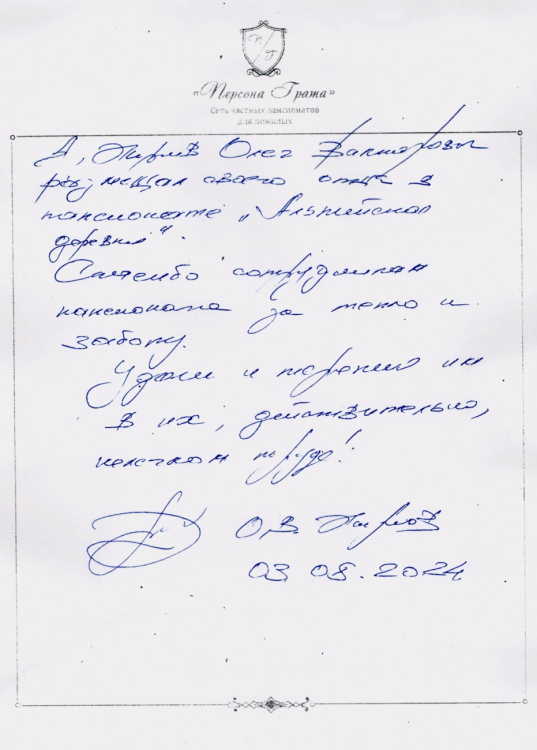 П Г
«Персона Грата»
Сеть частных пансионатов
для пожилых
Я, Олег Викторович
размещал своего отца в
пансионате „Альпийская
деревня“.
Спасибо сотрудникам
пансионата за тепло и
заботу.
Удачи и терпения им
в их, действительно,
нелегком труде!
О.В.
03 08.2024